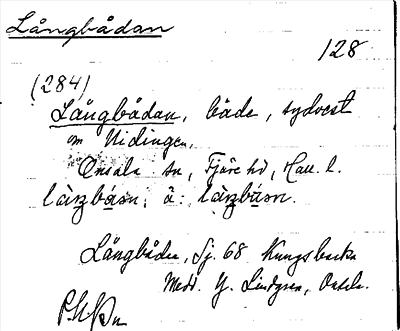 Långbådan
128
(284)
Långbådan, både, sydvest
om Nidingen.
Onsala sn, Fjäre hd, Hall. l.
Långbåden, Sj. 68 Kungsbacka
Medd. Y. Lindgren, Onsala.